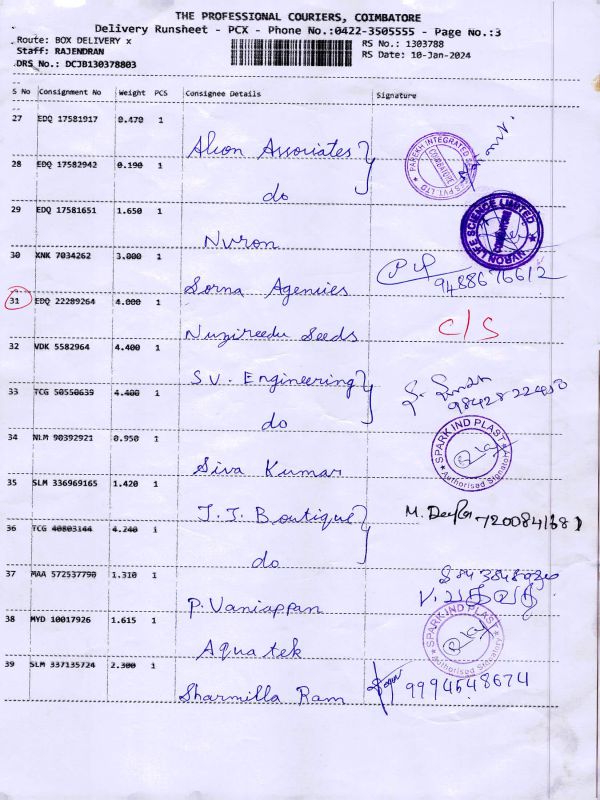 THE PROFESSIONAL COURIERS, COIMBATORE
Delivery Runsheet - PCX - Phone No.:0422-3505555 - Page No.:3
Route: BOX DELIVERY x
Staff: RAJENDRAN
DRS No.: DCJB130378803
RS No.: 1303788
RS Date: 10-Jan-2024
S No Consignment No Weight PCS Consignee Details Signature
27 EDQ 17581917 0.470 1
Alion Associates
PAREKH INTEGRATED PVT. LTD
COIMBATORE
28 EDQ 17582942 0.190 1
do
29 EDQ 17581651 1.650 1
Nvron
NVRON LIFE SCIENCE LIMITED
30 KNK 7034262 3.000 1
Sorna Agencies
9488676612
31 EDQ 22289264 4.000 1
Nuzireedu Seeds
C/S
32 VDK 5582964 4.400 1
S.V. Engineering
33 TCG 50550639 4.400 1
do
9842822453
34 NLM 90392921 0.950 1
Siva Kumar
SPARK IND PLAST
Authorised Signatory
35 SLM 336969165 1.420 1
J.J. Boutique
M. Deepa 7200841681
36 TCG 40803144 4.240 1
do
37 MAA 572537790 1.310 1
P. Vaniappan
38 MYD 10017926 1.615 1
Aqua tek
SPARK IND PLAST
Authorised Signatory
39 SLM 337135724 2.300 1
Sharmilla Ram
9994548674